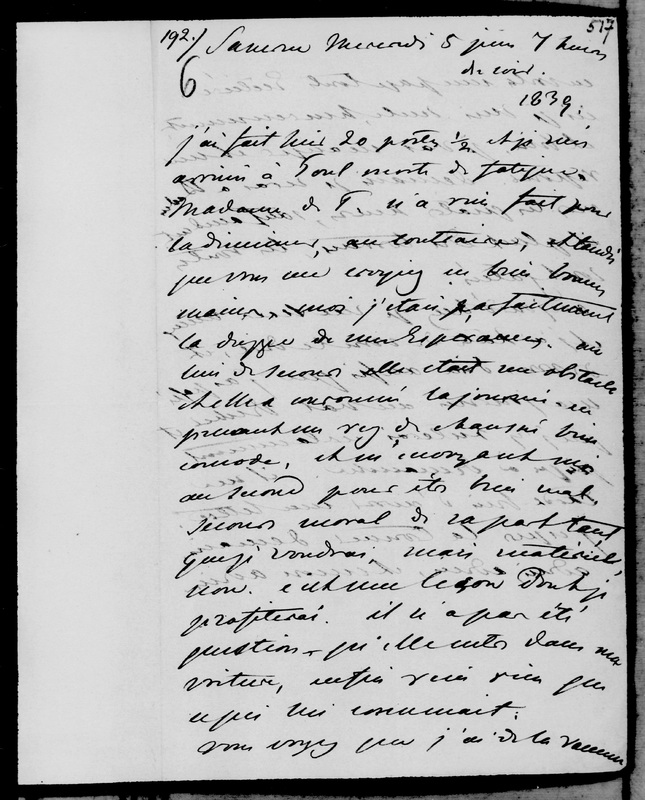 517
192./ Saverne Mercredi 5 juin 7 heures
6 du soir.
1839.
j'ai fait hier 20 postes 1/2 et je suis
arrivée à Toul morte de fatigue.
Madame de T. n'a rien fait pour
la diminuer, au contraire, et tandis
que vous me croyiez en bien bonnes
mains, moi j'étais parfaitement
la dupe de mes Espérances. au
lieu de secours elle était un obstacle
et elle a couronné la journée en
prenant un rez de chaussée bien
commode, et m'envoyant moi
au second pour être bien mal
secours moral de sa part tant
que je voudrai, mais matériel,
non. c'est une leçon dont je
profiterai. il n'a pas été
question qu'elle entre dans ma
voiture, enfin rien rien que
ce qui lui convenait.
vous voyez que j'ai de la rancune